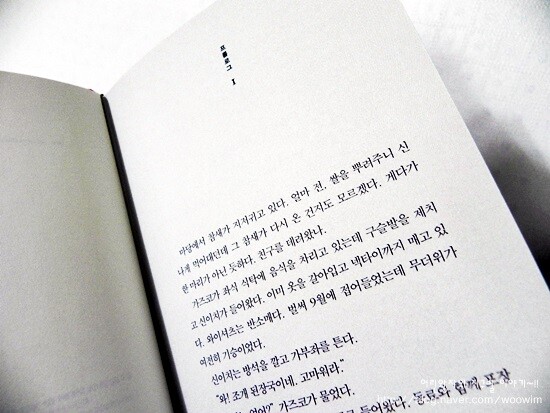 프롤로그
I
마당에서 참새가 지저귀고 있다. 얼마 전, 쌀을 뿌려주니 신
나게 먹어대던데 그 참새가 다시 온 건지도 모르겠다. 게다가
한 마리가 아닌 듯하다. 친구를 데려왔나.
가즈코가 좌식 식탁에 음식을 차리고 있는데 구슬발을 제치
고 신이치가 들어왔다. 이미 옷을 갈아입고 넥타이까지 매고 있
다. 와이셔츠는 반소매다. 벌써 9월에 접어들었는데 무더위가
여전히 기승이었다.
신이치는 방석을 깔고 가부좌를 튼다.
"와! 조개 된장국이네. 고마워라."
없어?" 가즈코가 물었다.
들이켰다.
포장
blog.naver.com/woowim